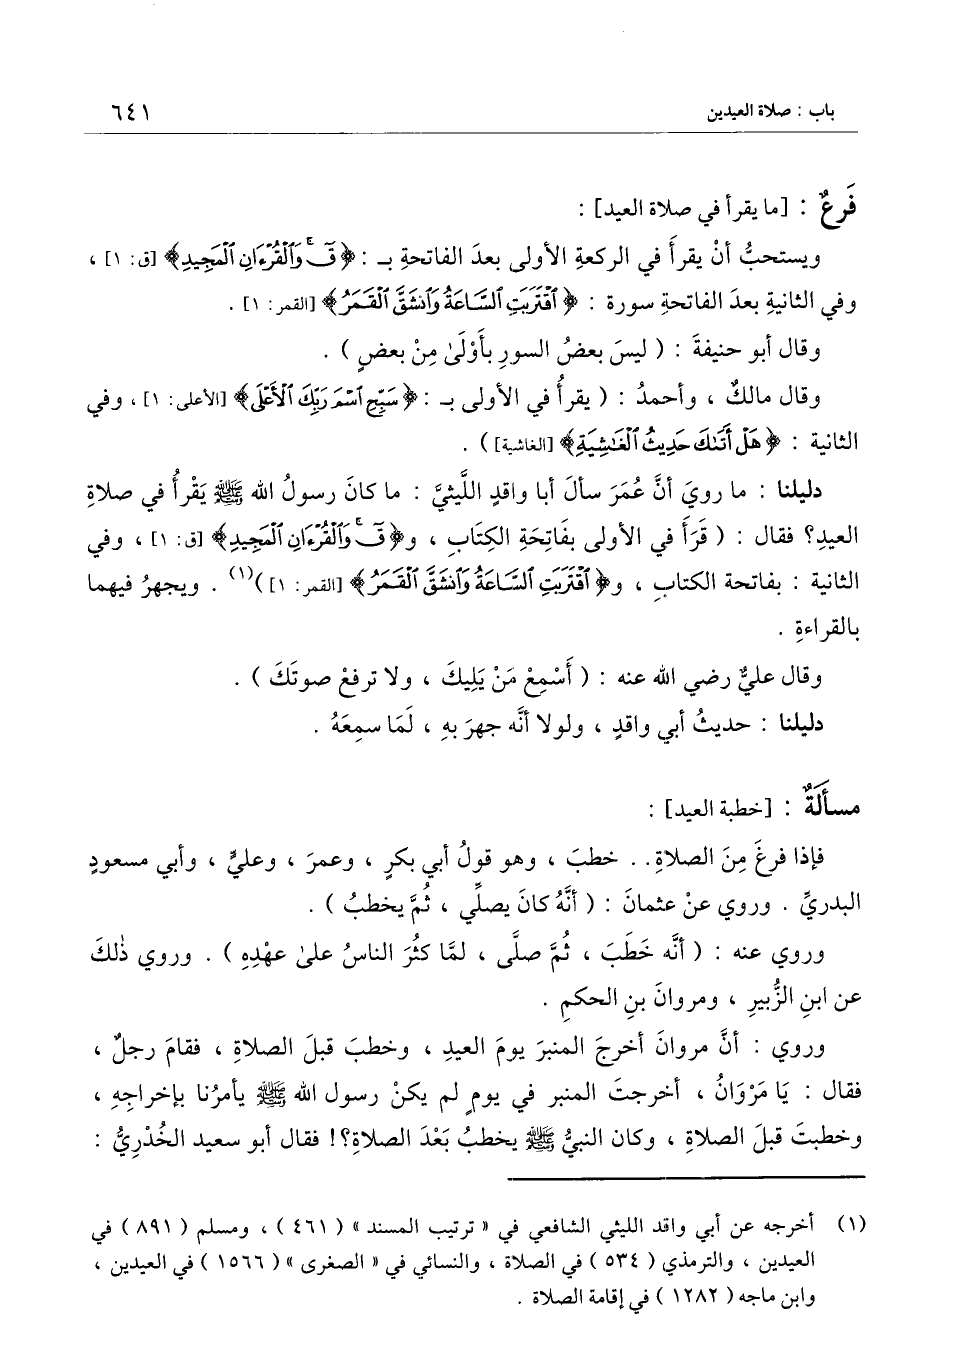 باب : صلاة العيدين ٦٤١
فَرعٌ : [ما يقرأ في صلاة العيد] :
ويستحبُّ أنْ يقرأَ في الركعةِ الأولى بعدَ الفاتحةِ بـ : ﴿قٓ ۚ وَٱلْقُرْءَانِ ٱلْمَجِيدِ﴾ [ق: ١] ،
وفي الثانيةِ بعدَ الفاتحةِ سورة : ﴿ٱقْتَرَبَتِ ٱلسَّاعَةُ وَٱنشَقَّ ٱلْقَمَرُ﴾ [القمر: ١] .
وقال أبو حنيفةَ : ( ليسَ بعضُ السورِ بأَوْلَىٰ مِنْ بعضٍ ) .
وقال مالكٌ ، وأحمدُ : ( يقرأُ في الأولى بـ : ﴿سَبِّحِ ٱسْمَ رَبِّكَ ٱلْأَعْلَى﴾ [الأعلى: ١] ، وفي
الثانية : ﴿هَلْ أَتَىٰكَ حَدِيثُ ٱلْغَٰشِيَةِ﴾ [الغاشية] ) .
دليلنا : ما رويَ أنَّ عُمَرَ سألَ أبا واقدٍ اللَّيثيَّ : ما كانَ رسولُ الله ﷺ يَقْرأُ في صلاةِ
العيدِ؟ فقال : ( قَرَأَ في الأولى بفَاتِحَةِ الكِتَابِ ، و﴿قٓ ۚ وَٱلْقُرْءَانِ ٱلْمَجِيدِ﴾ [ق: ١] ، وفي
الثانية : بفاتحة الكتابِ ، و﴿ٱقْتَرَبَتِ ٱلسَّاعَةُ وَٱنشَقَّ ٱلْقَمَرُ﴾ [القمر: ١] )(١) . ويجهرُ فيهما
بالقراءةِ .
وقال عليٌّ رضي الله عنه : ( أَسْمِعْ مَنْ يَلِيكَ ، ولا ترفعْ صوتَكَ ) .
دليلنا : حديثُ أبي واقدٍ ، ولولا أنَّه جهرَ بهِ ، لَمَا سمِعَهُ .
مسأَلَةٌ : [خطبة العيد] :
فإذا فرغَ مِنَ الصلاةِ. . خطبَ ، وهو قولُ أبي بكرٍ ، وعمرَ ، وعليٍّ ، وأبي مسعودٍ
البدريِّ . وروي عنْ عثمانَ : ( أنَّهُ كانَ يصلِّي ، ثُمَّ يخطبُ ) .
وروي عنه : ( أنَّه خَطَبَ ، ثُمَّ صلَّى ، لمَّا كثُرَ الناسُ علىٰ عهْدِهِ ) . وروي ذٰلكَ
عن ابنِ الزُّبيرِ ، ومروانَ بنِ الحكمِ .
وروي : أنَّ مروانَ أخرجَ المنبرَ يومَ العيدِ ، وخطبَ قبلَ الصلاةِ ، فقامَ رجلٌ ،
فقال : يَا مَرْوَانُ ، أخرجتَ المنبر في يومٍ لم يكنْ رسول الله ﷺ يأمرُنا بإخراجِهِ ،
وخطبتَ قبلَ الصلاةِ ، وكان النبيُّ ﷺ يخطبُ بَعْدَ الصلاةِ؟! فقال أبو سعيد الخُدْرِيُّ :
(١) أخرجه عن أبي واقد الليثي الشافعي في « ترتيب المسند » ( ٤٦١ ) ، ومسلم ( ٨٩١ ) في
العيدين ، والترمذي ( ٥٣٤ ) في الصلاة ، والنسائي في « الصغرى » ( ١٥٦٦ ) في العيدين ،
وابن ماجه ( ١٢٨٢ ) في إقامة الصلاة .